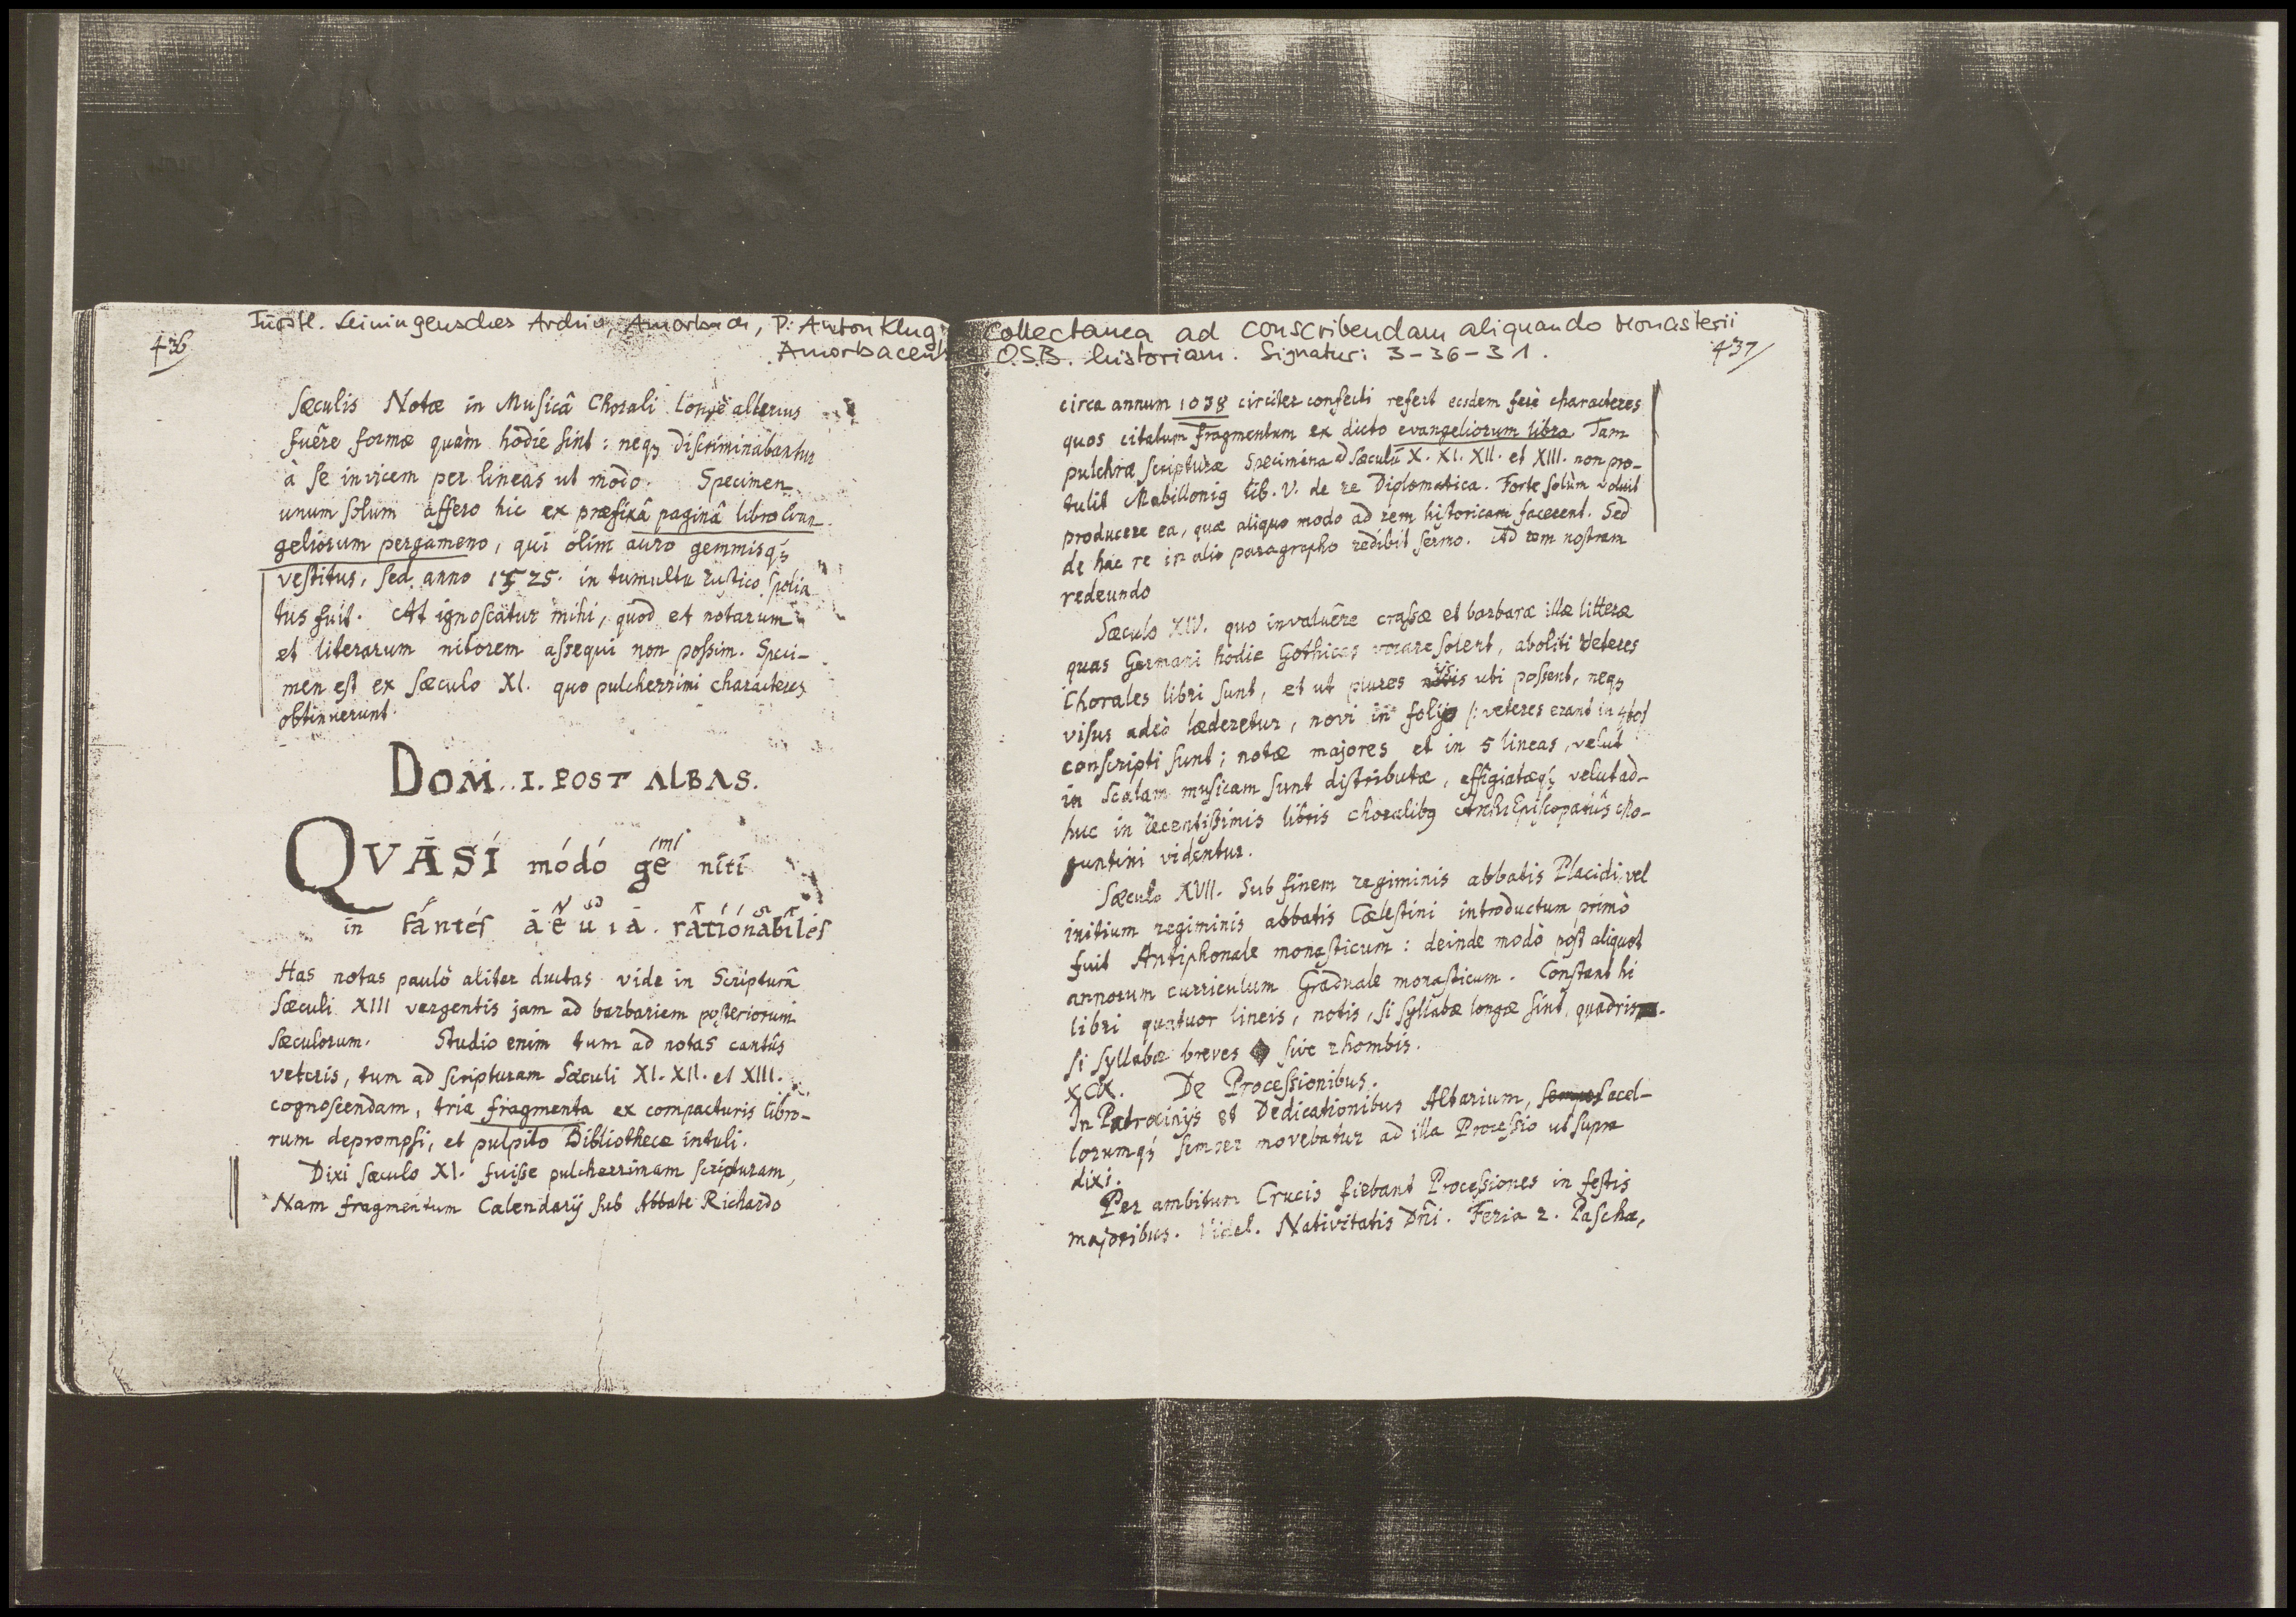 Fürstl. Leiningensches Archiv, Amorbach, P. Anton Klug: Collectanea ad conscribendam aliquando Monasterii
Amorbacensis O.S.B. historiam. Signatur: 3-36-31.
436
ſæculis Notæ in Muſicâ Chorali longè alterius
fuêre formæ quàm hodie ſint: neqꝫ diſcriminabantur
à ſe invicem per lineas ut modo. Specimen
unum ſolum affero hic ex præfixâ paginâ libro Evan-
geliorum pergameno, qui olim auro gemmisqꝫ
veſtitus, ſed anno 1525. in tumultu ruſtico ſpolia
tus fuit. At ignoſcatur mihi, quod et notarum
et literarum nitorem aſſequi non poſſim. Speci-
men eſt ex ſæculo XI. quo pulcherrimi characteres
obtinuerunt.
DOM..I. POST ALBAS.
QVĀSÍ módó géni nītī
in fántéſ āēuiā. rātíónābīléſ
Has notas paulò aliter ductas vide in Scripturâ
ſæculi XIII vergentis jam ad barbariem poſteriorum
ſæculorum. Studio enim tum ad notas cantûs
veteris, tum ad ſcripturam Sæculi XI. XII. et XIII.
cognoſcendam, tria fragmenta ex compacturis libro-
rum deprompſi, et pulpito Bibliothecæ intuli.
Dixi ſæculo XI. fuiſſe pulcherrimam ſcripturam,
Nam fragmentum Calendarij ſub Abbate Richardo
437
circa annum 1038 circiter confecti refert eosdem ferè characteres
quos citatum fragmentum ex dicto evangeliorum libro. Tam
pulchræ ſcripturæ Specimina ſæculi X. XI. XII. et XIII. non pro-
tulit Mabillonig lib. V. de re Diplomatica. Forte ſolùm voluit
producere ea, quæ aliquo modo ad rem hiſtoricam facerent. Sed
de hac re in alio paragrapho redibit ſermo. Ad rem noſtram
redeundo
Sæculo XIV. quo invaluêre craſſæ et barbaræ illæ litteræ
quas Germani hodie Gothicas vocare ſolent, aboliti veteres
Chorales libri ſunt, et ut plures ubi poſſent, neqꝫ
viſus adeò læderetur, novi in folijo /: veteres erant in 4to/
conſcripti ſunt; notæ majores et in 5 lineas, velut
in Scalam muſicam ſunt diſtributæ, effigiatæqꝫ velut ad-
huc in recentiſſimis libris choralibꝫ ArchiEpiſcopatûs Mo-
guntini videntur.
Sæculo XVII. Sub finem regiminis abbatis Placidi, vel
initium regiminis abbatis Cæleſtini introductum primò
fuit Antiphonale monaſticum: deinde modò poſt aliquot
annorum curriculum Graduale monaſticum. Conſtant hi
libri quatuor lineis, notis, ſi ſyllabæ longæ ſint, quadris ■.
ſi ſyllabæ breves ◆ ſive rhombis.
XCIX. De Proceſſionibus.
In Patrocinijs et Dedicationibus Altarium, ſacel-
lorumqꝫ ſemper movebatur ad illa Proceſſio ut ſupra
dixi.
Per ambitum Crucis fiebant Proceſſiones in feſtis
majoribus. Videl. Nativitatis Dñi. Feria 2. Paſchæ,